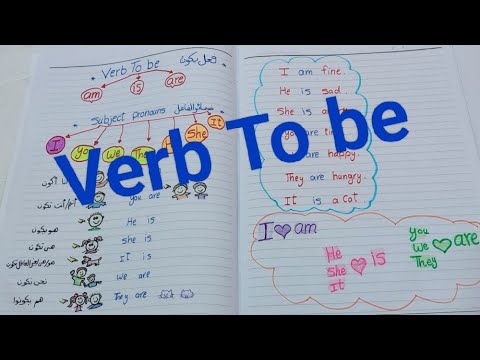 Verb To be فعل يكون
am is are
Subject pronouns ضمائر الفاعل
I you we They She It
you are
He is
هو يكون
she is
هي تكون
It is
we are
نحن نكون
They are
هم يكونوا
I am fine.
He is sad.
She is
you are
are happy.
They are hungry.
It is a cat.
I am
He
She is
It
you
we are
They
Verb To be